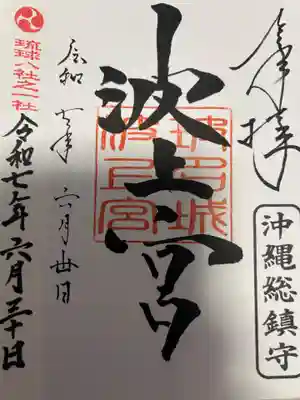 奉拝
沖縄総鎮守
波上宮
波上宮
令和 七年 六月卅日
琉球八社之一社
令和七年六月三十日